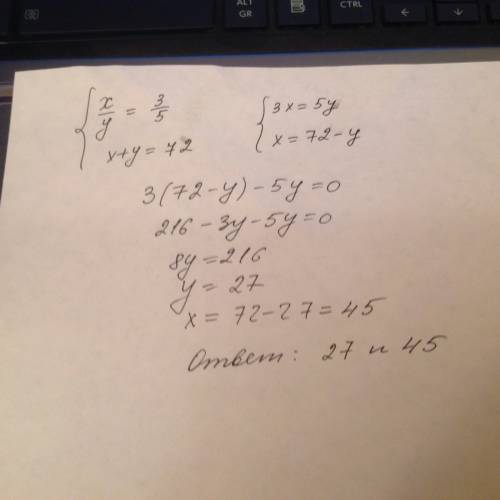 ALT GR
CTRL
x/y = 3/5
x+y = 72
3x = 5y
x = 72-y
3(72-y)-5y=0
216-3y-5y=0
8y=216
y = 27
x = 72-27 = 45
Ответ: 27 и 45